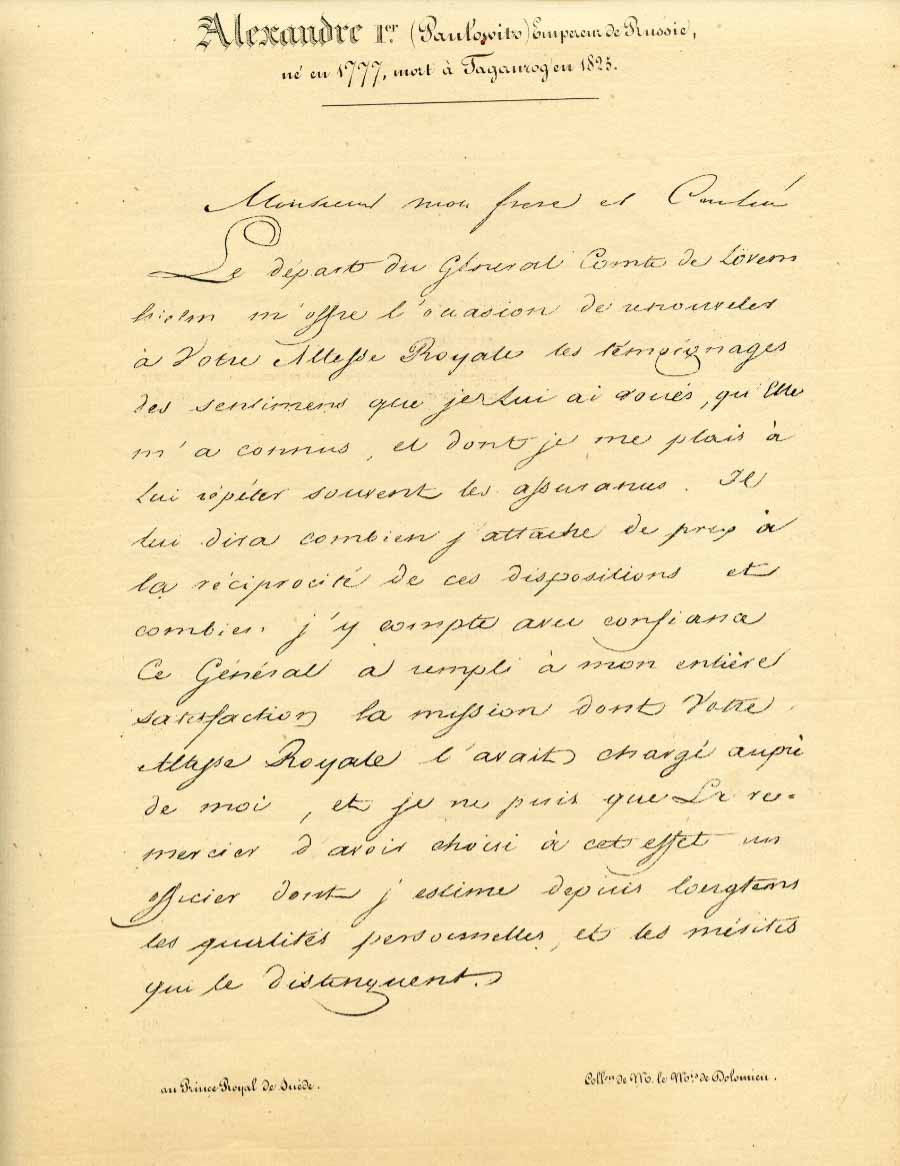 Alexandre Ier (Paulowitz) Empereur de Russie,
né en 1777, mort à Taganrog en 1825.
Monsieur mon frere et Cousin
Le départ du Général Comte de Lövem
hielm m'offre l'occasion de renouveler
à Votre Altesse Royale les témoignages
des sentimens que je Lui ai voués, qu'Elle
m'a connus, et dont je me plais à
Lui répéter souvent les assurances. Il
lui dira combien j'attache de prix à
la réciprocité de ces dispositions et
combien j'y compte avec confiance
Ce Général a rempli à mon entière
satisfaction la mission dont Votre
Altesse Royale l'avait chargé auprè
de moi, et je ne puis que La re-
mercier d'avoir choisi à cet effet un
officier dont j'estime depuis longtems
les qualités personnelles, et les mérites
qui le distinguent.
au Prince Royal de Suède.
Collon de M. le Mis de Dolomieu.